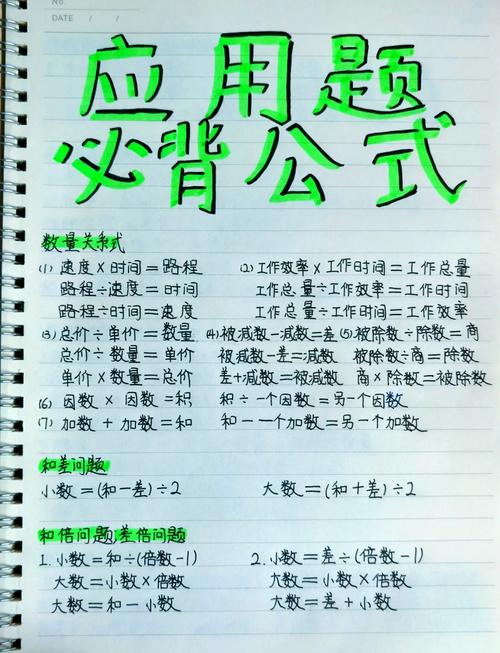 No.
DATE / /
应用题
必背公式
数量关系式
(1) 速度×时间=路程 (2) 工作效率×工作时间=工作总量
路程÷速度=时间 工作总量÷工作效率=工作时间
路程÷时间=速度 工作总量÷工作时间=工作效率
(3) 总价÷单价=数量 (4) 被减数-减数=差 (5) 被除数÷除数=商
总价÷数量=单价 被减数-差=减数 被除数÷商=除数
单价×数量=总价 差+减数=被减数 商×除数=被除数
(6) 因数×因数=积 积÷一个因数=另一个因数
(7) 加数+加数=和 和-一个加数=另一个加数
和差问题
小数=(和-差)÷2 大数=(和+差)÷2
和倍问题,差倍问题
1. 小数=和÷(倍数-1) 2. 小数=差÷(倍数-1)
大数=小数×倍数 大数=小数×倍数
大数=和-小数 大数=差+小数